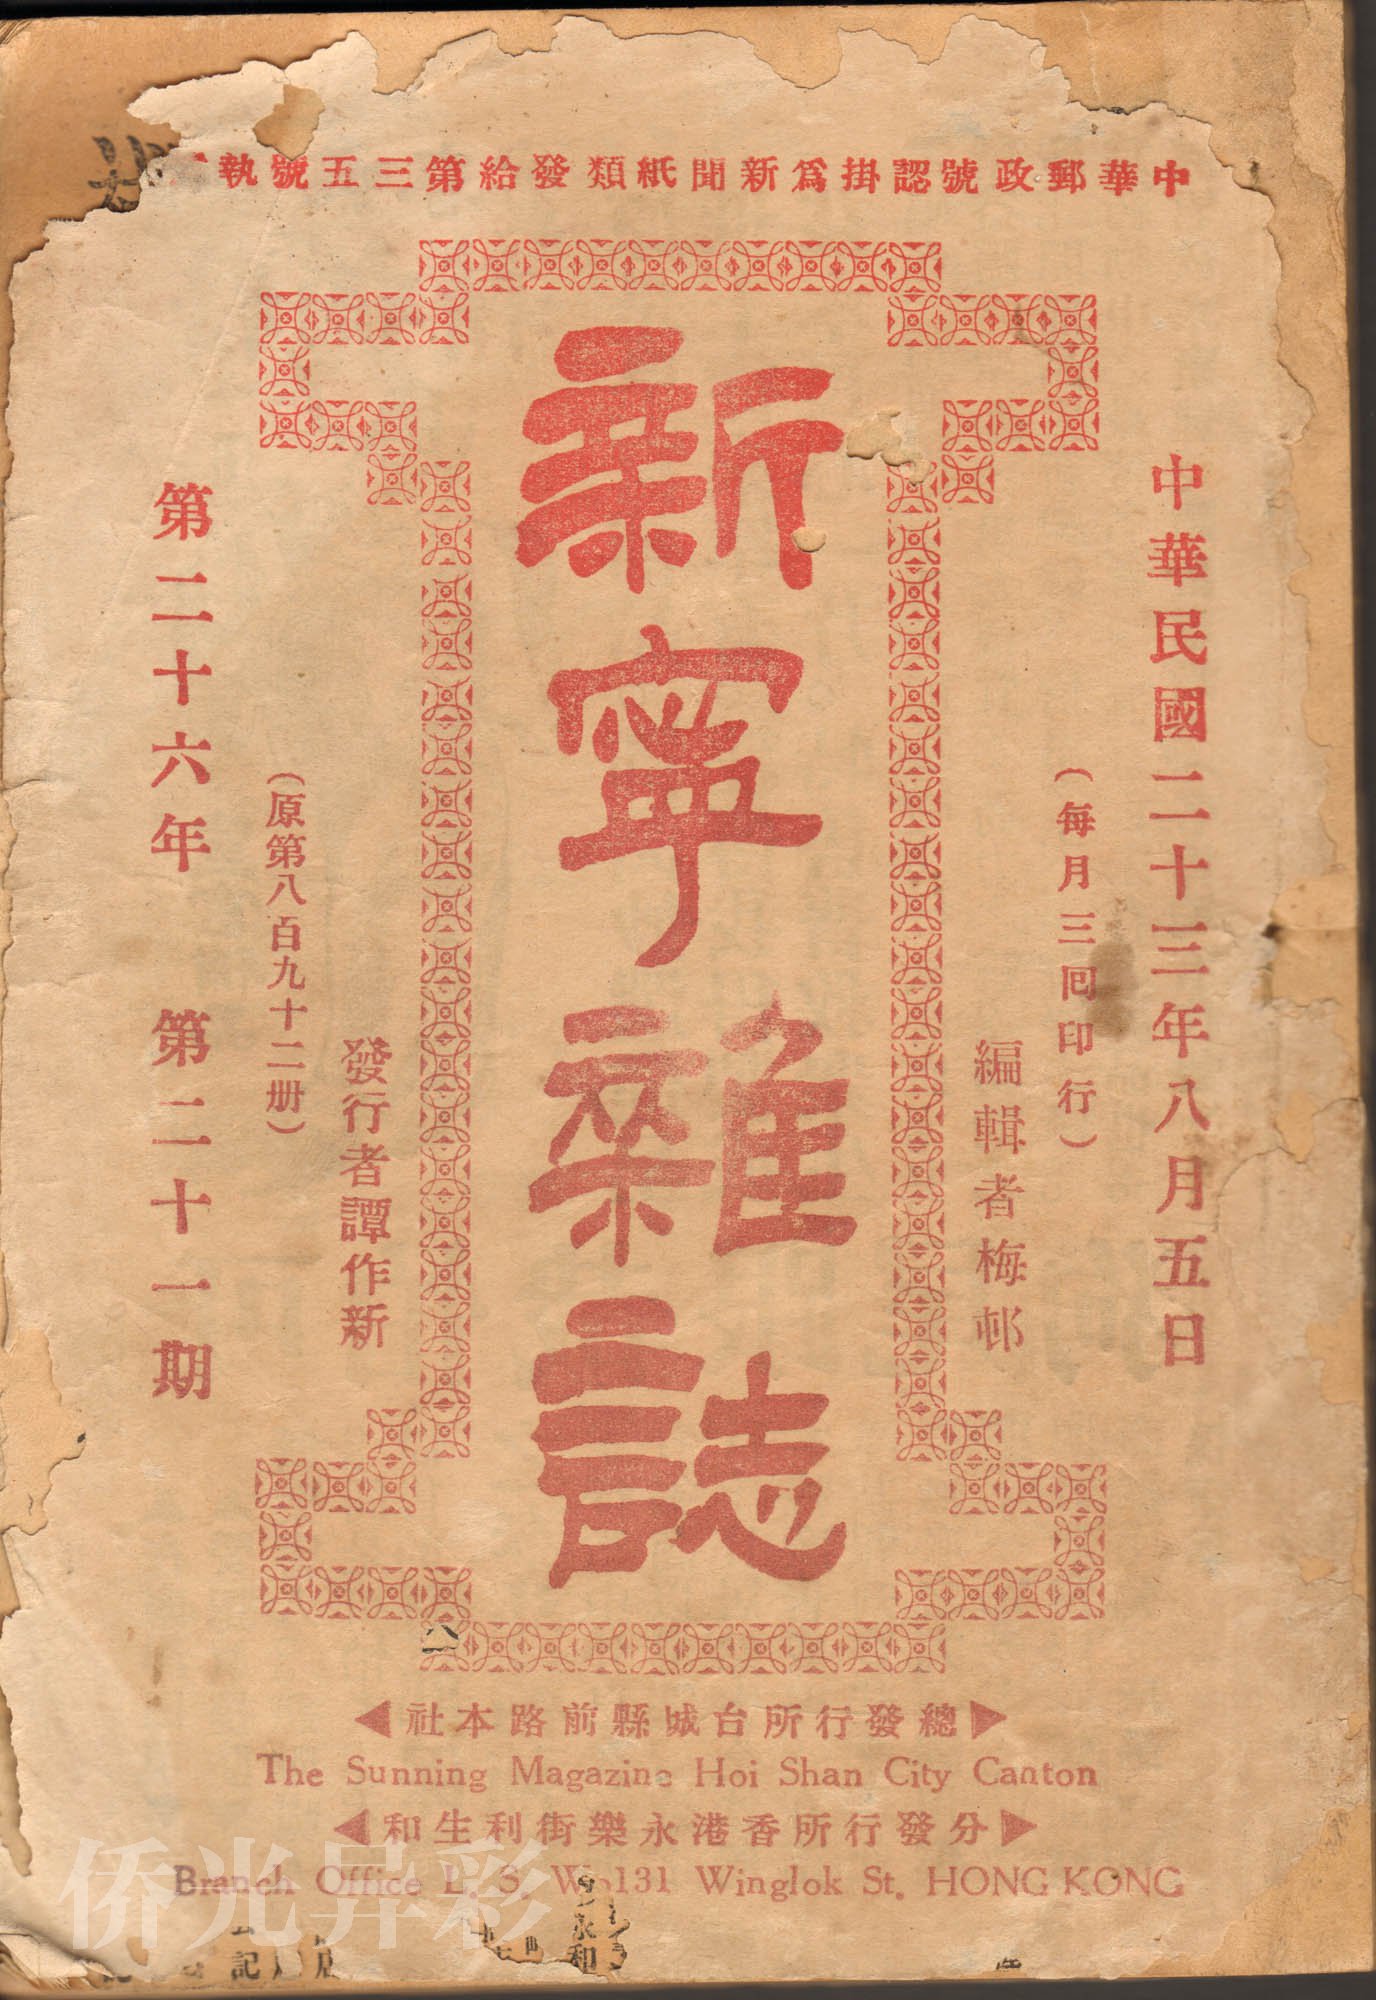 中華郵政號認掛爲新聞紙類發給第三五號執
中華民國二十三年八月五日
(每月三囘印行)
編輯者梅邨
新寧雜誌
發行者譚作新
(原第八百九十二册)
第二十六年 第二十一期
總發行所台城縣前路本社
The Sunning Magazine Hoi Shan City Canton
分發行所香港永樂街利生和
Branch Office L. S. Wo131 Winglok St. HONG KONG
侨光异彩
永和
記